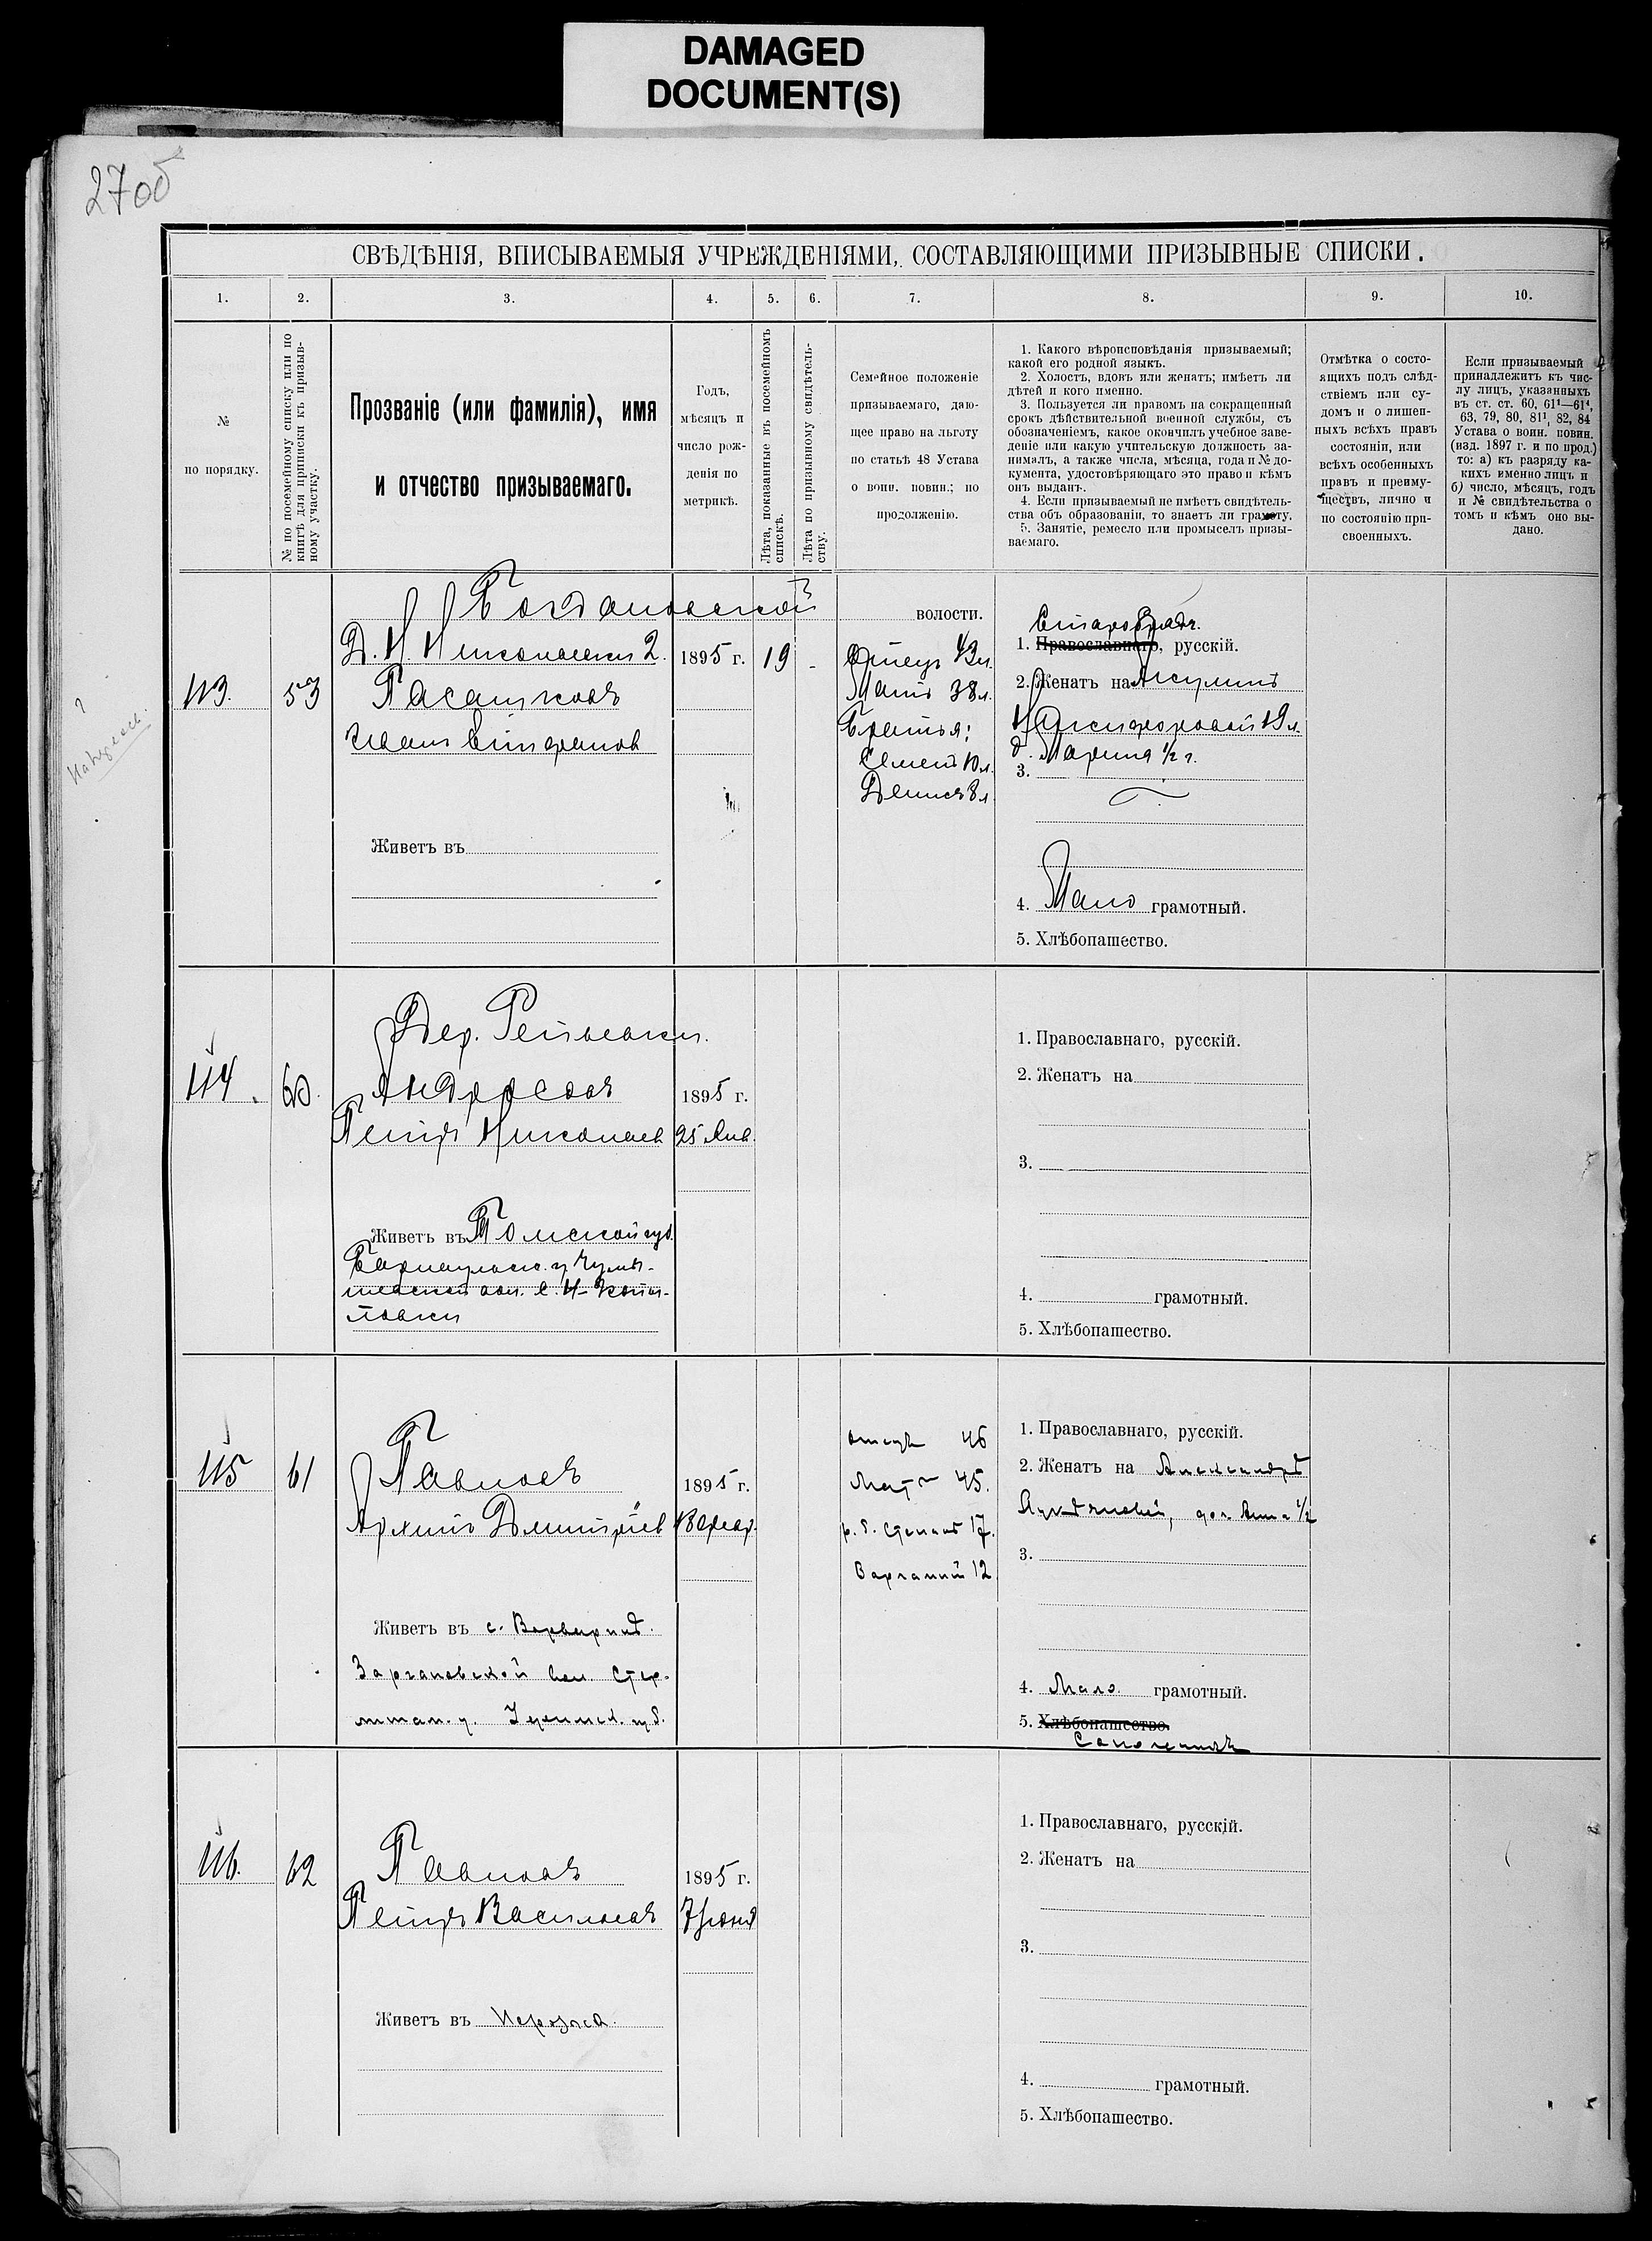 DAMAGED
DOCUMENT(S)
27об
СВѢДѢНІЯ, ВПИСЫВАЕМЫЯ УЧРЕЖДЕНІЯМИ, СОСТАВЛЯЮЩИМИ ПРИЗЫВНЫЕ СПИСКИ.
1.
2.
3.
4.
5.
6.
7.
8.
9.
10.
№
по порядку.
№ по посемейному списку или по
книгѣ для приписки къ призыв-
ному участку.
Прозваніе (или фамилія), имя
и отчество призываемаго.
Годъ,
мѣсяцъ и
число рож-
денія по
метрикѣ.
Лѣта, показанные въ посемейномъ
спискѣ.
Лѣта по призывному свидѣтель-
ству.
Семейное положеніе
призываемаго, даю-
щее право на льготу
по статьѣ 48 Устава
о воин. повин.; по
продолженію.
1. Какого вѣроисповѣданія призываемый;
какой его родной языкъ.
2. Холостъ, вдовъ или женатъ; имѣетъ ли
дѣтей и кого именно.
3. Пользуется ли правомъ на сокращенный
срокъ дѣйствительной военной службы, съ
обозначеніемъ, какое окончилъ учебное заве-
деніе или какую учительскую должность за-
нималъ, а также числа, мѣсяца, года и № до-
кумента, удостовѣряющаго это право и кѣмъ
онъ выданъ.
4. Если призываемый не имѣетъ свидѣтель-
ства объ образованіи, то знаетъ ли грамоту.
5. Занятіе, ремесло или промыселъ призы-
ваемаго.
Отмѣтка о состо-
ящихъ подъ слѣд-
ствіемъ или су-
домъ и о лишен-
ныхъ всѣхъ правъ
состоянія, или
всѣхъ особенныхъ
правъ и преиму-
ществъ, лично и
по состоянію при-
своенныхъ.
Если призываемый
принадлежитъ къ чис-
лу лицъ, указанныхъ
въ ст. ст. 60, 61¹—61⁴,
63, 79, 80, 81¹, 82, 84
Устава о воин. повин.
(изд. 1897 г. и по прод.)
то: а) къ разряду ка-
кихъ именно лицъ и
б) число, мѣсяцъ, годъ
и № свидѣтельства о
томъ и кѣмъ оно вы-
дано.
Богдановской волости.
Д. Н. Николаевки 2.
113.
53
Иван
1895 г.
19
-
Отецъ 43 л.
Мать 38 л.
Братья:
Семенъ 10 л.
Денисъ 8 л.
Старообрядч.
1. Православнаго, русскій.
2. Женатъ на Акулинѣ
Никифоровой 19 л.
д. Марина ½ г.
3.
Живетъ въ
4. Мало грамотный.
5. Хлѣбопашество.
114.
60.
Дер.
Андросовъ
Петръ Николаев
1895 г.
25 Янв.
Живетъ въ Томской губ.
Барнаульск. у Чумы-
шевской вол.
1. Православнаго, русскій.
2. Женатъ на
3.
4. грамотный.
5. Хлѣбопашество.
115
61
Павловъ
Архипъ Дмитріев
1895 г.
Живетъ въ с. Варваринѣ.
Заргановской вол. Стер-
литам. у. Уфимск. губ.
отецъ 46
Мать 45.
р. б. Степанъ 17.
12
1. Православнаго, русскій.
2. Женатъ на Александрѣ
Лукьяновой, доч. Анна ½
3.
4. Мало грамотный.
5. Хлѣбопашество.
Сапожникъ
116.
62
Павловъ
Петръ Васильевъ
1895 г.
7 Іюня
Живетъ въ
1. Православнаго, русскій.
2. Женатъ на
3.
4. грамотный.
5. Хлѣбопашество.